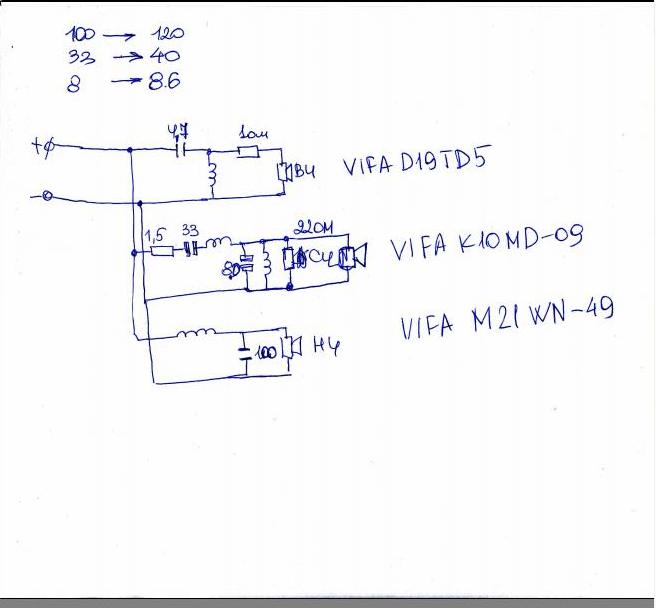 100 → 120
33 → 40
8 → 8.6
+
4,7
1ом
ВЧ
VIFA D19TD5
-
1,5
33
8,0
22ОМ
СЧ
VIFA K10MD-09
100
НЧ
VIFA M21WN-49